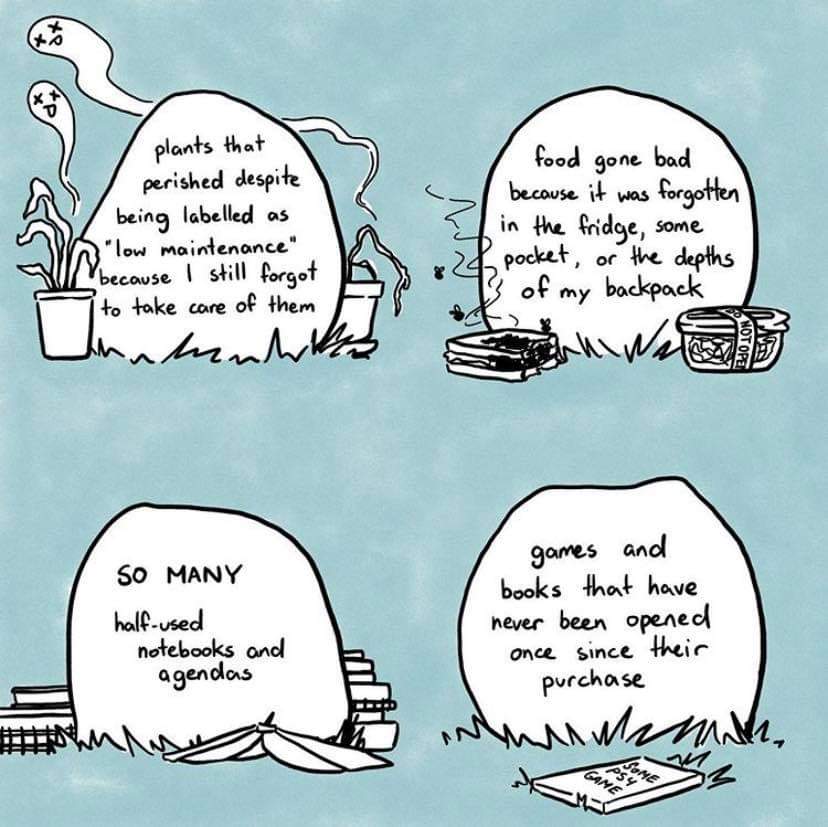 plants that
perished despite
being labelled as
"low maintenance"
because I still forgot
to take care of them
food gone bad
because it was forgotten
in the fridge, some
pocket, or the depths
of my backpack
NOT OPE
SO MANY
half-used
notebooks and
agendas
games and
books that have
never been opened
once since their
purchase
SOME
PS4
GAME